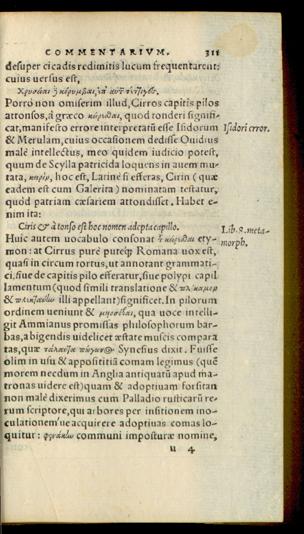 COMMENTARIVM. 311
desuper cicadis redimitis lucum frequentarent:
cuius uersus est,
Porro non omiserim illud, Cirros capitis pilos
attonsos, à græco quod tonderi signifi-
cat, manifesto errore interpretatũ esse Isidorum
Isidori error.
& Merulam, cuius occasionem dedisse Ouidius
malè intellectus, meo quidem iudicio potest,
quum de Scylla patricida loquens in auem mu-
tata, hoc est, Larinē si efferas, Cirin (quæ
eadem est cum Galerita) nominatam testatur,
quòd patriam cæsariem attondisset. Habet e-
nim ita:
Ciris & à tonso est hoc nomen adepta capillo.
Lib. 8. meta-
morph.
Huic autem uocabulo consonat ety-
mon: at Cirrus purè putéq; Romana uox est,
quasi in circum tortus, ut annotant grammati-
ci, siue de capitis pilo efferatur, siue polypi capil
lamentum (quod simili translatione &
& illi appellant) significet. In pilorum
ordinem ueniunt & qua uoce intelli-
git Ammianus promissas philosophorum bar-
bas, abigendis uidelicet æstate muscis compara
tas, quæ Synesius dixit. Fuisse
olim in usu & appositítiā comam legimus (quē
morem necdum in Anglia antiquatũ apud ma-
tronas uidere est) quam & adoptiuam forsitan
non malè dixerimus cum Palladio rusticarũ re-
rum scriptore, qui arbores per insitionem ino-
culationem´ue acquirere adoptiuas comas lo-
quitur: communi imposturæ nomine,
u 4